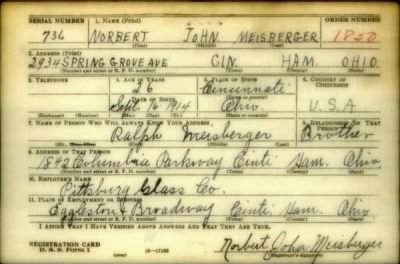 SERIAL NUMBER 1. NAME (Print) ORDER NUMBER
736 NORBERT JOHN MEISBERGER 1850
(First) (Middle) (Last)
2. ADDRESS (Print)
2934 SPRING GROVE AVE CIN. HAM. OHIO
(Number and street or R. F. D. number) (Town) (County) (State)
3. TELEPHONE 4. AGE IN YEARS 5. PLACE OF BIRTH 6. COUNTRY OF CITIZENSHIP
26 Cincinnati
DATE OF BIRTH
Sept. 16 1914 Ohio. U.S.A
7. NAME OF PERSON WHO WILL ALWAYS KNOW YOUR ADDRESS 8. RELATIONSHIP OF THAT PERSON
Ralph Meisberger Brother
9. ADDRESS OF THAT PERSON
1842 Columbia Parkway Cinti Ham. Ohio
(Number and street or R. F. D. number) (Town) (County) (State)
10. EMPLOYER'S NAME
Pittsburg Glass Co.
11. PLACE OF EMPLOYMENT OR BUSINESS
Eggleston & Broadway Cinti. Ham. Ohio
(Number and street or R. F. D. number) (Town) (County) (State)
I AFFIRM THAT I HAVE VERIFIED ABOVE ANSWERS AND THAT THEY ARE TRUE.
REGISTRATION CARD
D. S. S. Form 1 (over) Norbert John Meisberger
(Registrant's signature)